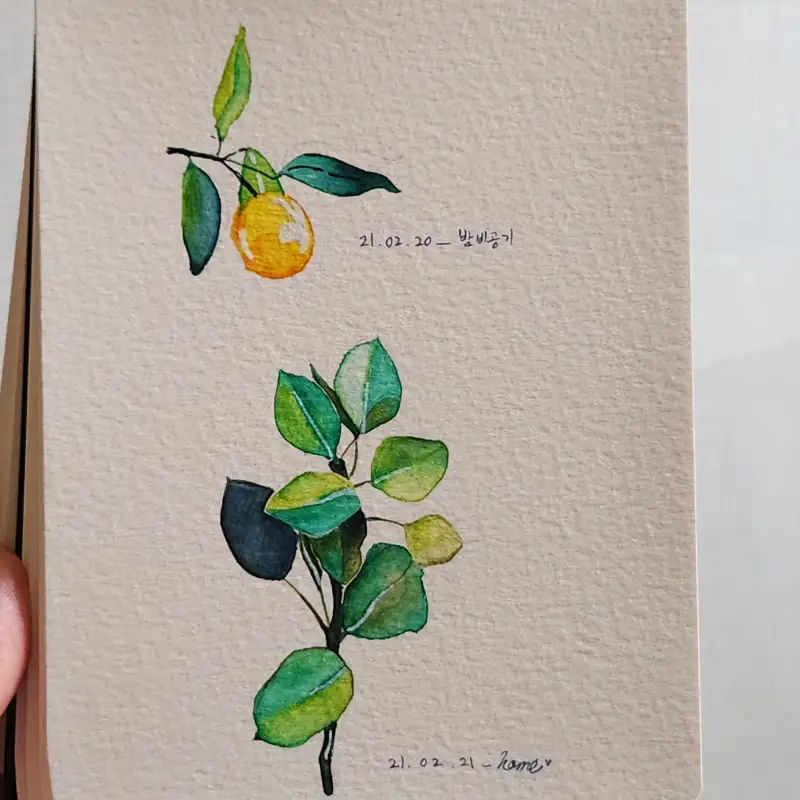 21.02.20_밤비공기
21.02.21_home♥